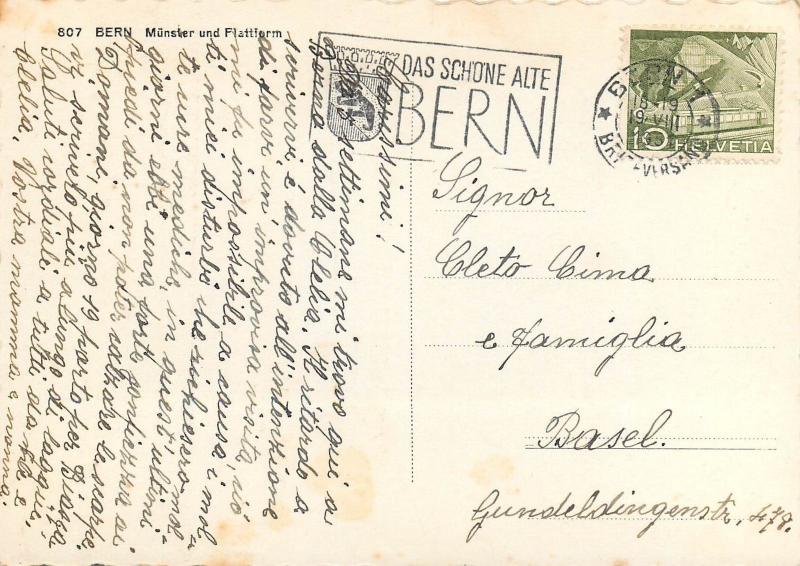 807 BERN Münster und Plattform
DAS SCHÖNE ALTE
BERN
BERN 1
18-19
19.VIII
BRIEFVERSAND
10 HELVETIA
Carissimi!
Da 3 settimane mi trovo qui a
Berna dalla Clelia. Il ritardo a
scrivervi è dovuto all'intenzione
di farvi un'improvvisa visita, ciò
mi fu impossibile a causa, i mol-
ti miei disturbi che richiesero mol-
te cure mediche, in quest'ultimi
giorni ebbi una forte gonfiezza ai
piedi da non poter calzare le scarpe.
Domani, giorno 19 parto per
vi scriverò più a lungo di laggiù.
Saluti cordiali a tutti da me e
Clelia. Vostra mamma e nonna.
Signor
Cleto Cima
e famiglia
Basel.
Gundeldingenstr. 478.